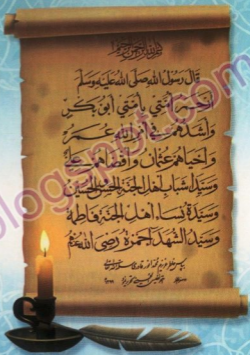 قَالَ رَسُولُ اللهِ صَلَّى اللهُ عَلَيْهِ وَسَلَّمَ
أَرْحَمُ أُمَّتِي بِأُمَّتِي أَبُو بَكْرٍ
وَأَشَدُّهُمْ فِي أَمْرِ اللهِ عُمَرُ
وَأَحْيَاهُمْ عُثْمَانُ وَأَقْضَاهُمْ عَلِيٌّ
وَسَيِّدَا شَبَابِ أَهْلِ الْجَنَّةِ الْحَسَنُ وَالْحُسَيْنُ
وَسَيِّدَةُ نِسَاءِ أَهْلِ الْجَنَّةِ فَاطِمَةُ
وَسَيِّدُ الشُّهَدَاءِ حَمْزَةُ رَضِيَ اللهُ عَنْهُمْ
blogspot.com